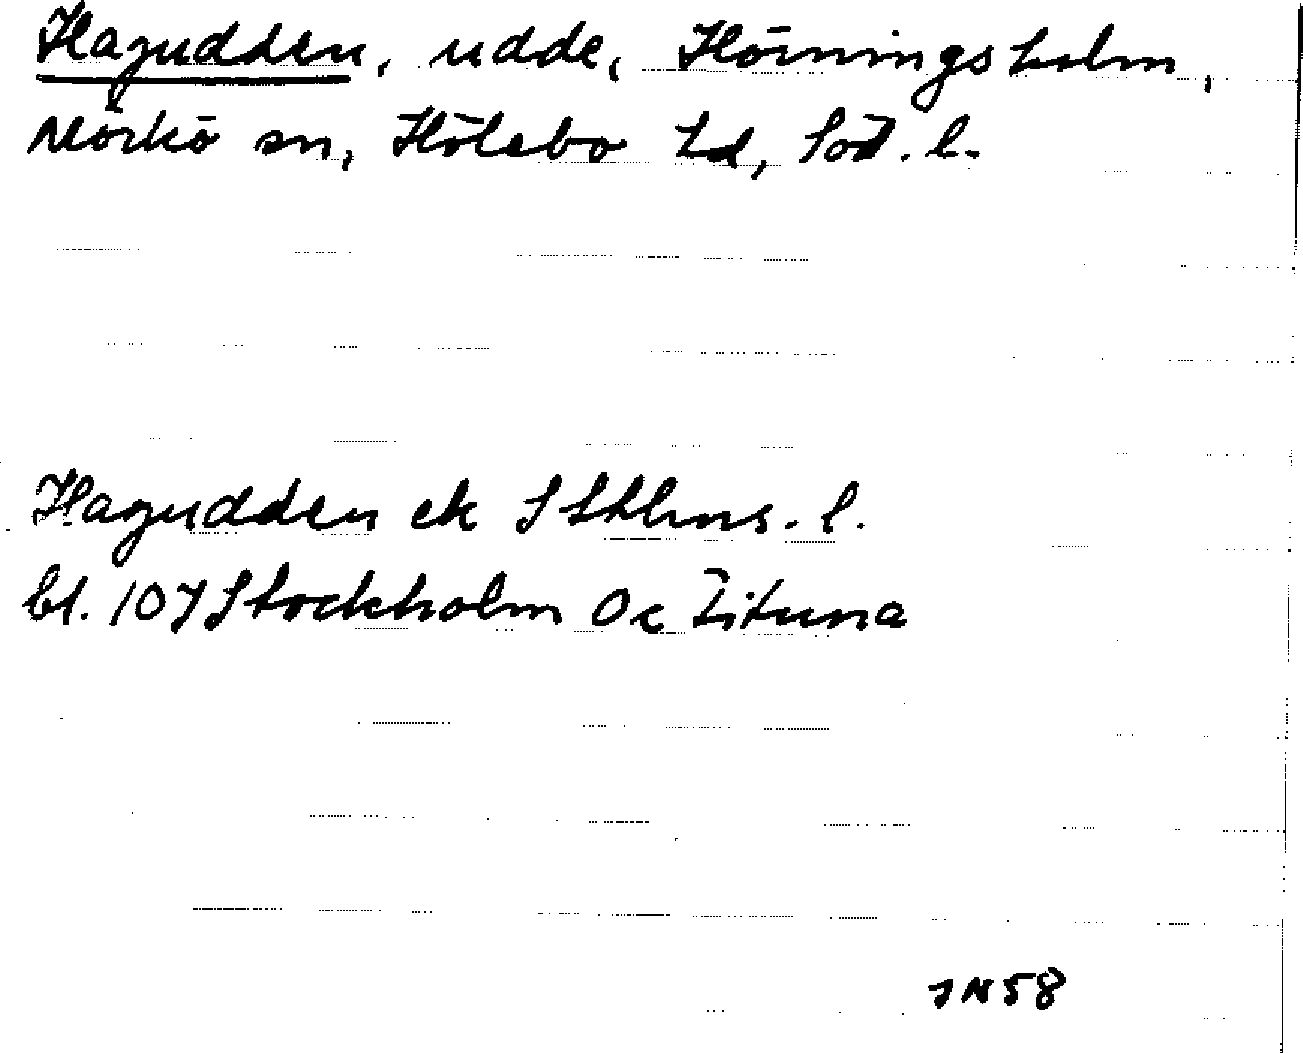 Hagudden, udde, Hörningsholm,
Mörkö sn, Hölebo hd, Söd. l.
Hagudden ek S Sthlms. l.
bl. 107 Stockholm Oc Zituna
JN58